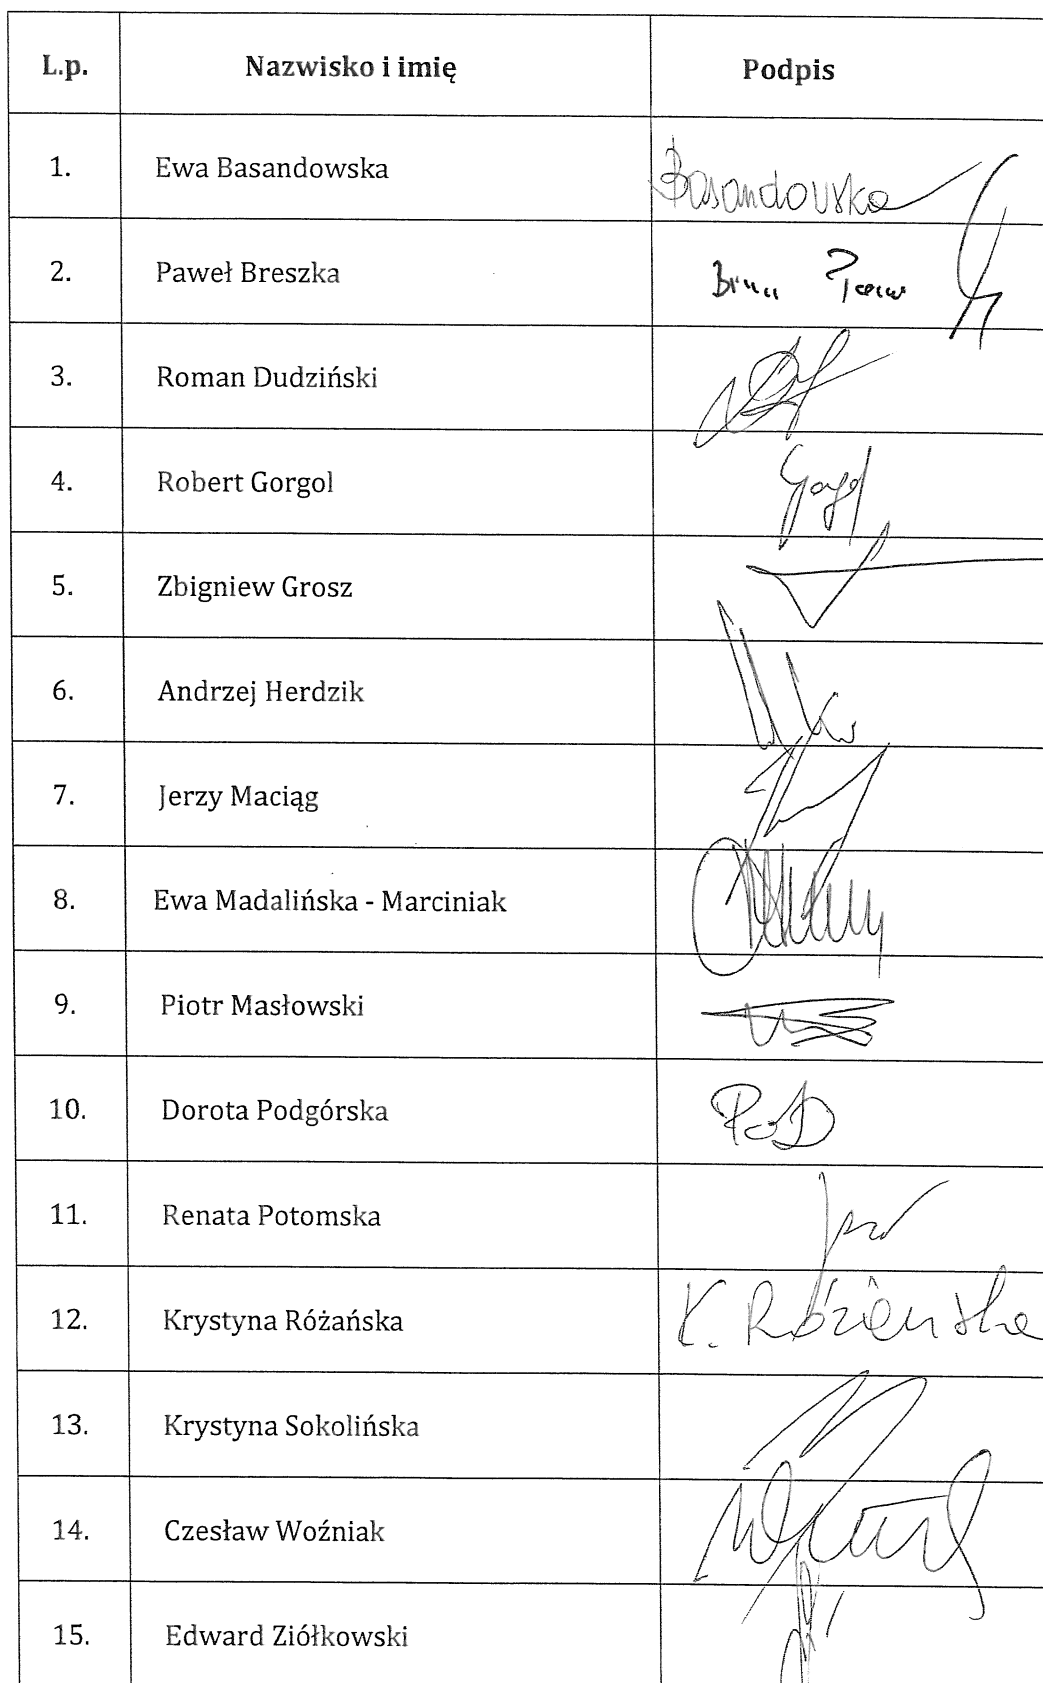 L.p. Nazwisko i imię Podpis
1. Ewa Basandowska Basandowska
2. Paweł Breszka
3. Roman Dudziński
4. Robert Gorgol Gorgol
5. Zbigniew Grosz
6. Andrzej Herdzik
7. Jerzy Maciąg
8. Ewa Madalińska - Marciniak
9. Piotr Masłowski
10. Dorota Podgórska PoD
11. Renata Potomska
12. Krystyna Różańska K. Różańska
13. Krystyna Sokolińska
14. Czesław Woźniak
15. Edward Ziółkowski